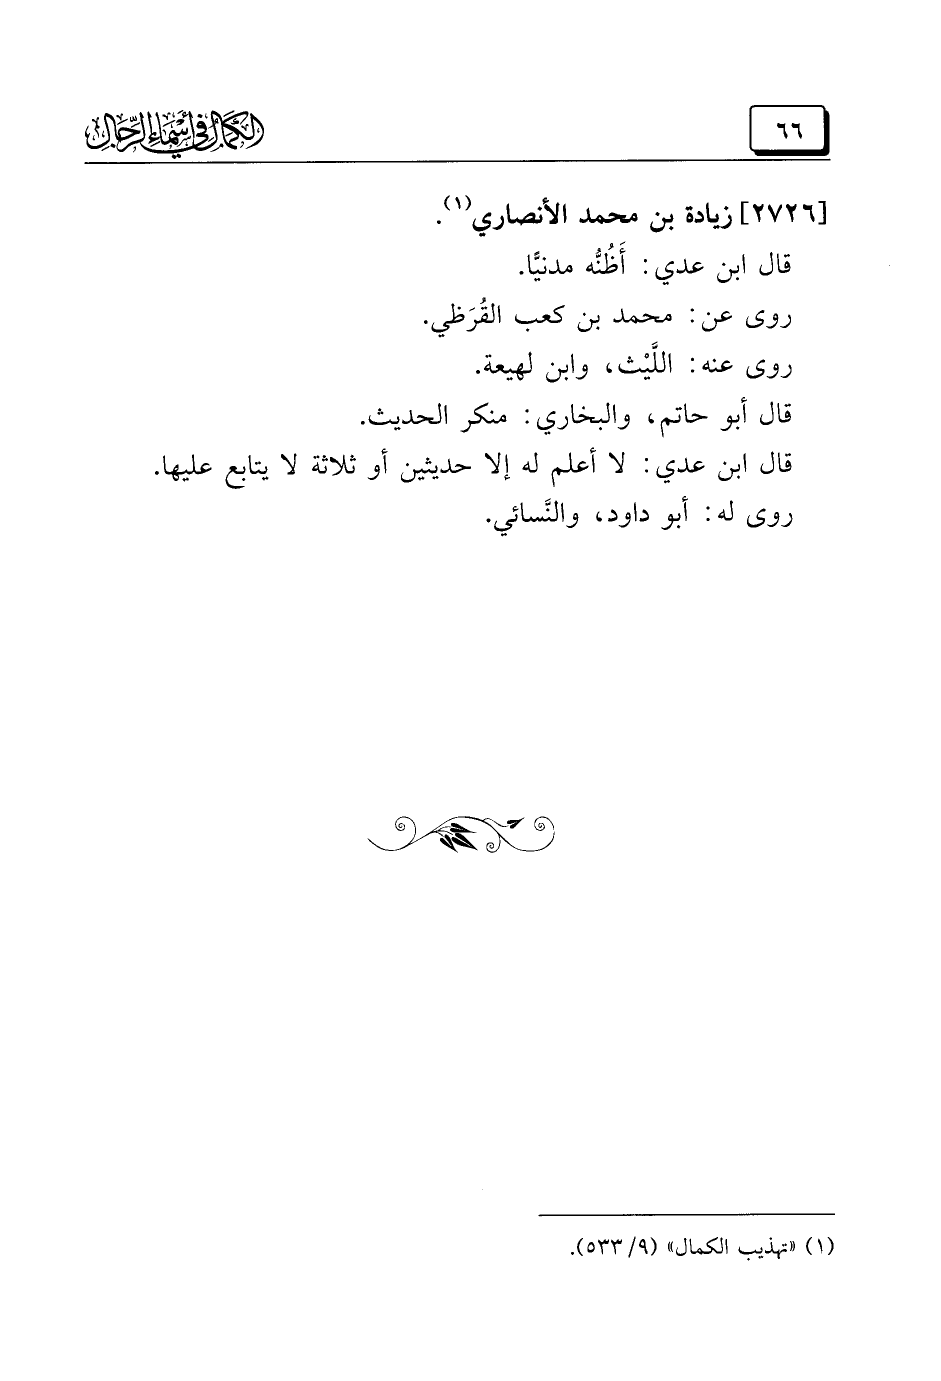 ٦٦
الكمال في أسماء الرجال
[٢٧٢٦] زيادة بن محمد الأنصاري(١).
قال ابن عدي: أَظُنُّه مدنيًّا.
روى عن: محمد بن كعب القُرَظي.
روى عنه: اللَّيْث، وابن لهيعة.
قال أبو حاتم، والبخاري: منكر الحديث.
قال ابن عدي: لا أعلم له إلا حديثين أو ثلاثة لا يتابع عليها.
روى له: أبو داود، والنَّسائي.
(١) «تهذيب الكمال» (٩/ ٥٣٣).